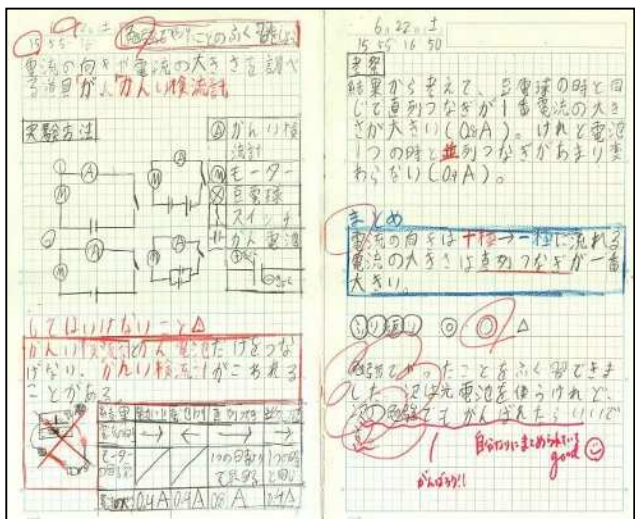 15 55
電流の向きや電流の大きさを調べ
る道具「かんい検流計」
実験方法
Ⓐかんい検
流計
Ⓜモーター
豆電球
スイッチ
かん電池
してはいけないこと△
かんい検流計とかん電池だけをつな
げない。かんい検流計がこわれる
ことがある。
結果
0.4A 0.4A 0.8A 0.4A
6月22日土
15 55 16 50
考察
結果から考えて、豆電球の時と同
じで直列つなぎが1番電流の大き
さが大きい(0.8A)。けれど電池
1つの時と並列つなぎがあまり変
わらない(0.4A)。
まとめ
電流の向きは+極→-極に流れる
電流の大きさは直列つなぎが一番
大きい。
ふり返り ◎ ○ △
勉強でやったことをふく習できま
した。次は光電池を使うけれど、
次の勉強でもがんばれたらいいで
す。
自分なりにまとめられている
good
がんばろう!!